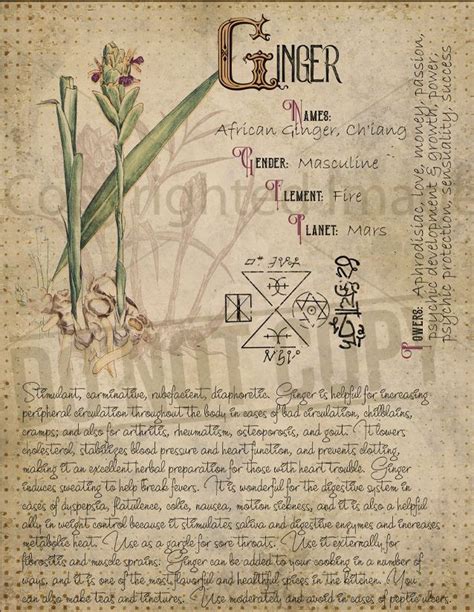 Ginger
Names:
African Ginger, Ch'iang
Gender: Masculine
Element: Fire
Planet: Mars
Powers: Aphrodisiac, love, money, passion,
psychic development & growth, power,
psychic protection, sensuality, success
Copyrighted
DO NOT COPY
Stimulant, carminative, rubefacient, diaphoretic. Ginger is helpful for increasing
peripheral circulation throughout the body in cases of bad circulation, chilblains,
cramps; and also for arthritis, rheumatism, osteoporosis, and gout. It lowers
cholesterol, stabilizes blood pressure and heart function, and prevents clotting,
making it an excellent herbal preparation for those with heart trouble. Ginger
reduces sweating to help break fevers. It is wonderful for the digestive system in
cases of dyspepsia, flatulence, colic, nausea, motion sickness, and it is also a helpful
ally in weight control because it stimulates saliva and digestive enzymes and increases
metabolic heat. Use as a gargle for sore throats. Use it externally for
fibrositis and muscle sprains. Ginger can be added to your cooking in a number of
ways, and it is one of the most flavorful and healthful spices in the kitchen. You
can also make teas and tinctures. Use moderately and avoid in cases of peptic ulcers.